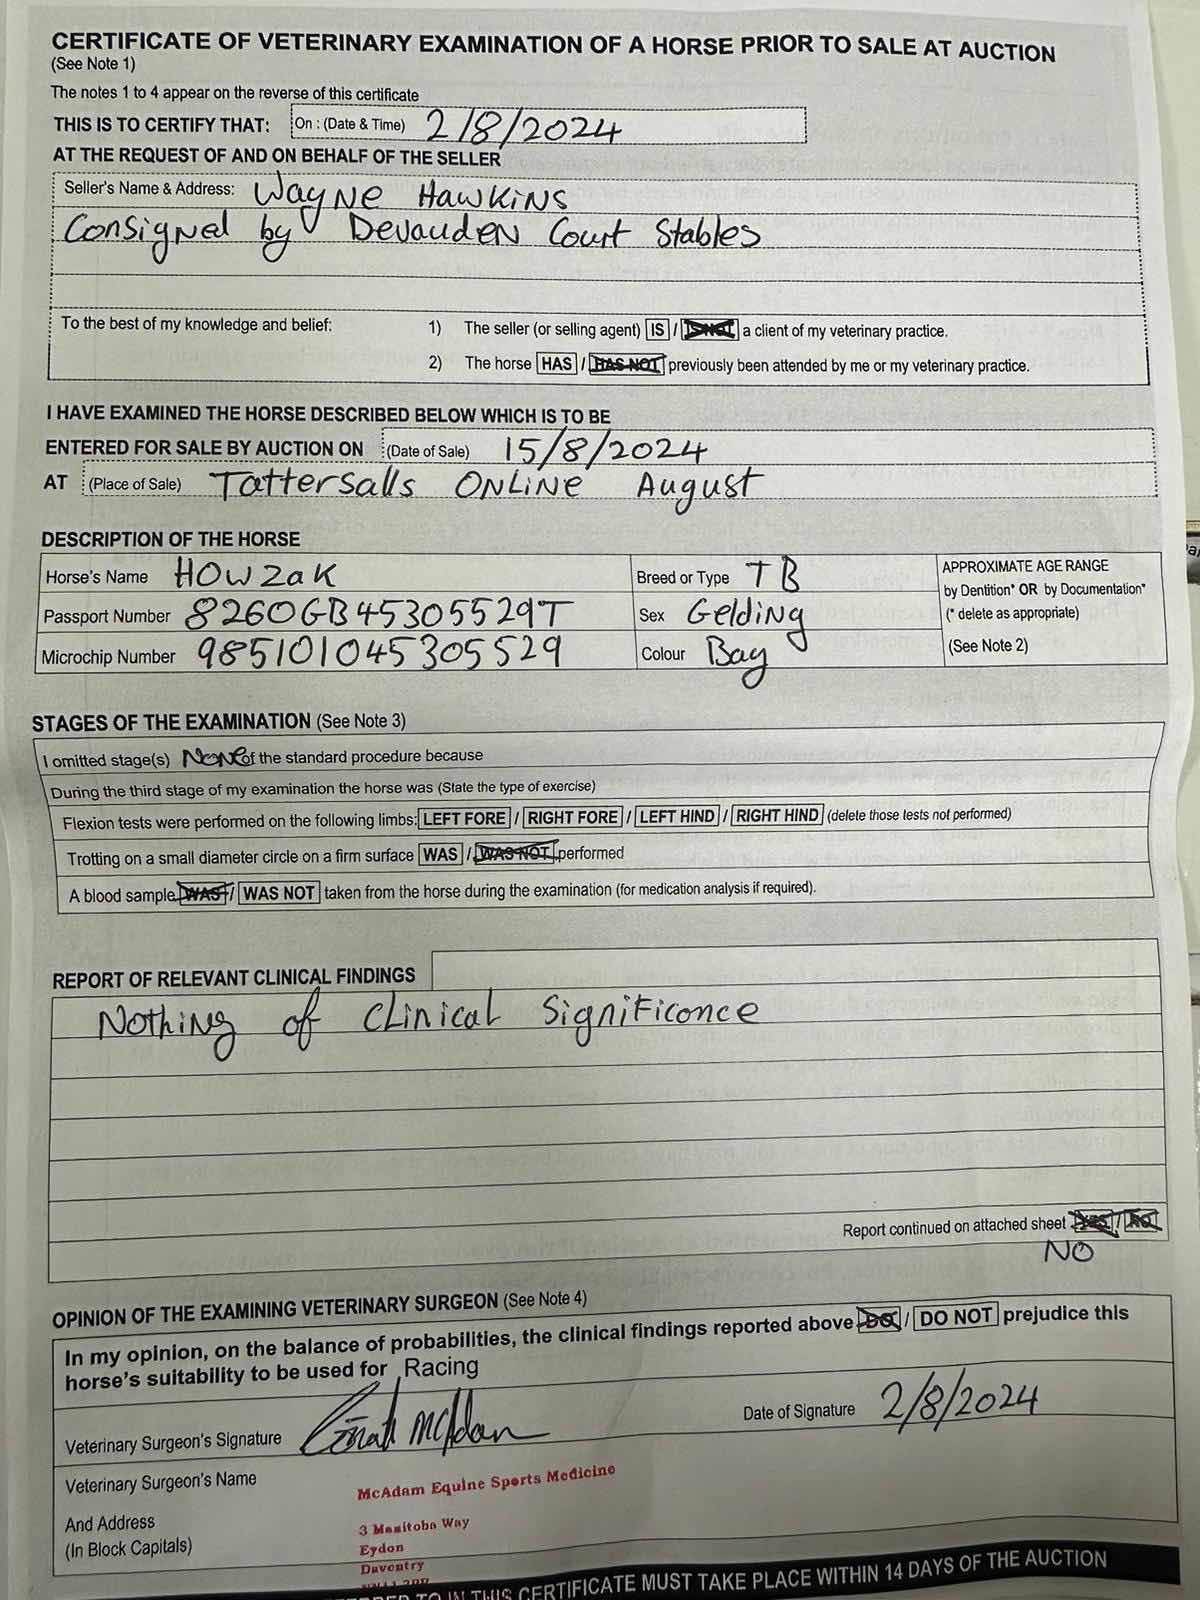 CERTIFICATE OF VETERINARY EXAMINATION OF A HORSE PRIOR TO SALE AT AUCTION
(See Note 1)
The notes 1 to 4 appear on the reverse of this certificate
THIS IS TO CERTIFY THAT: On : (Date & Time) 2/8/2024
AT THE REQUEST OF AND ON BEHALF OF THE SELLER
Seller's Name & Address: Wayne Hawkins
Consigned by Devauden Court Stables
To the best of my knowledge and belief: 1) The seller (or selling agent) IS / IS NOT a client of my veterinary practice.
2) The horse HAS / HAS NOT previously been attended by me or my veterinary practice.
I HAVE EXAMINED THE HORSE DESCRIBED BELOW WHICH IS TO BE
ENTERED FOR SALE BY AUCTION ON (Date of Sale) 15/8/2024
AT (Place of Sale) Tattersalls Online August
DESCRIPTION OF THE HORSE
Horse's Name Howzak Breed or Type TB APPROXIMATE AGE RANGE
by Dentition* OR by Documentation*
Passport Number 8260GB45305529T Sex Gelding (* delete as appropriate)
Microchip Number 985101045305529 Colour Bay (See Note 2)
STAGES OF THE EXAMINATION (See Note 3)
I omitted stage(s) None of the standard procedure because
During the third stage of my examination the horse was (State the type of exercise)
Flexion tests were performed on the following limbs: LEFT FORE / RIGHT FORE / LEFT HIND / RIGHT HIND (delete those tests not performed)
Trotting on a small diameter circle on a firm surface WAS / WAS NOT performed
A blood sample WAS / WAS NOT taken from the horse during the examination (for medication analysis if required).
REPORT OF RELEVANT CLINICAL FINDINGS
Nothing of Clinical Significance
Report continued on attached sheet YES / NO
NO
OPINION OF THE EXAMINING VETERINARY SURGEON (See Note 4)
In my opinion, on the balance of probabilities, the clinical findings reported above DO / DO NOT prejudice this
horse's suitability to be used for Racing
Veterinary Surgeon's Signature McAdam Date of Signature 2/8/2024
Veterinary Surgeon's Name McAdam Equine Sports Medicine
And Address 3 Manitoba Way
(In Block Capitals) Eydon
Daventry
IN THIS CERTIFICATE MUST TAKE PLACE WITHIN 14 DAYS OF THE AUCTION